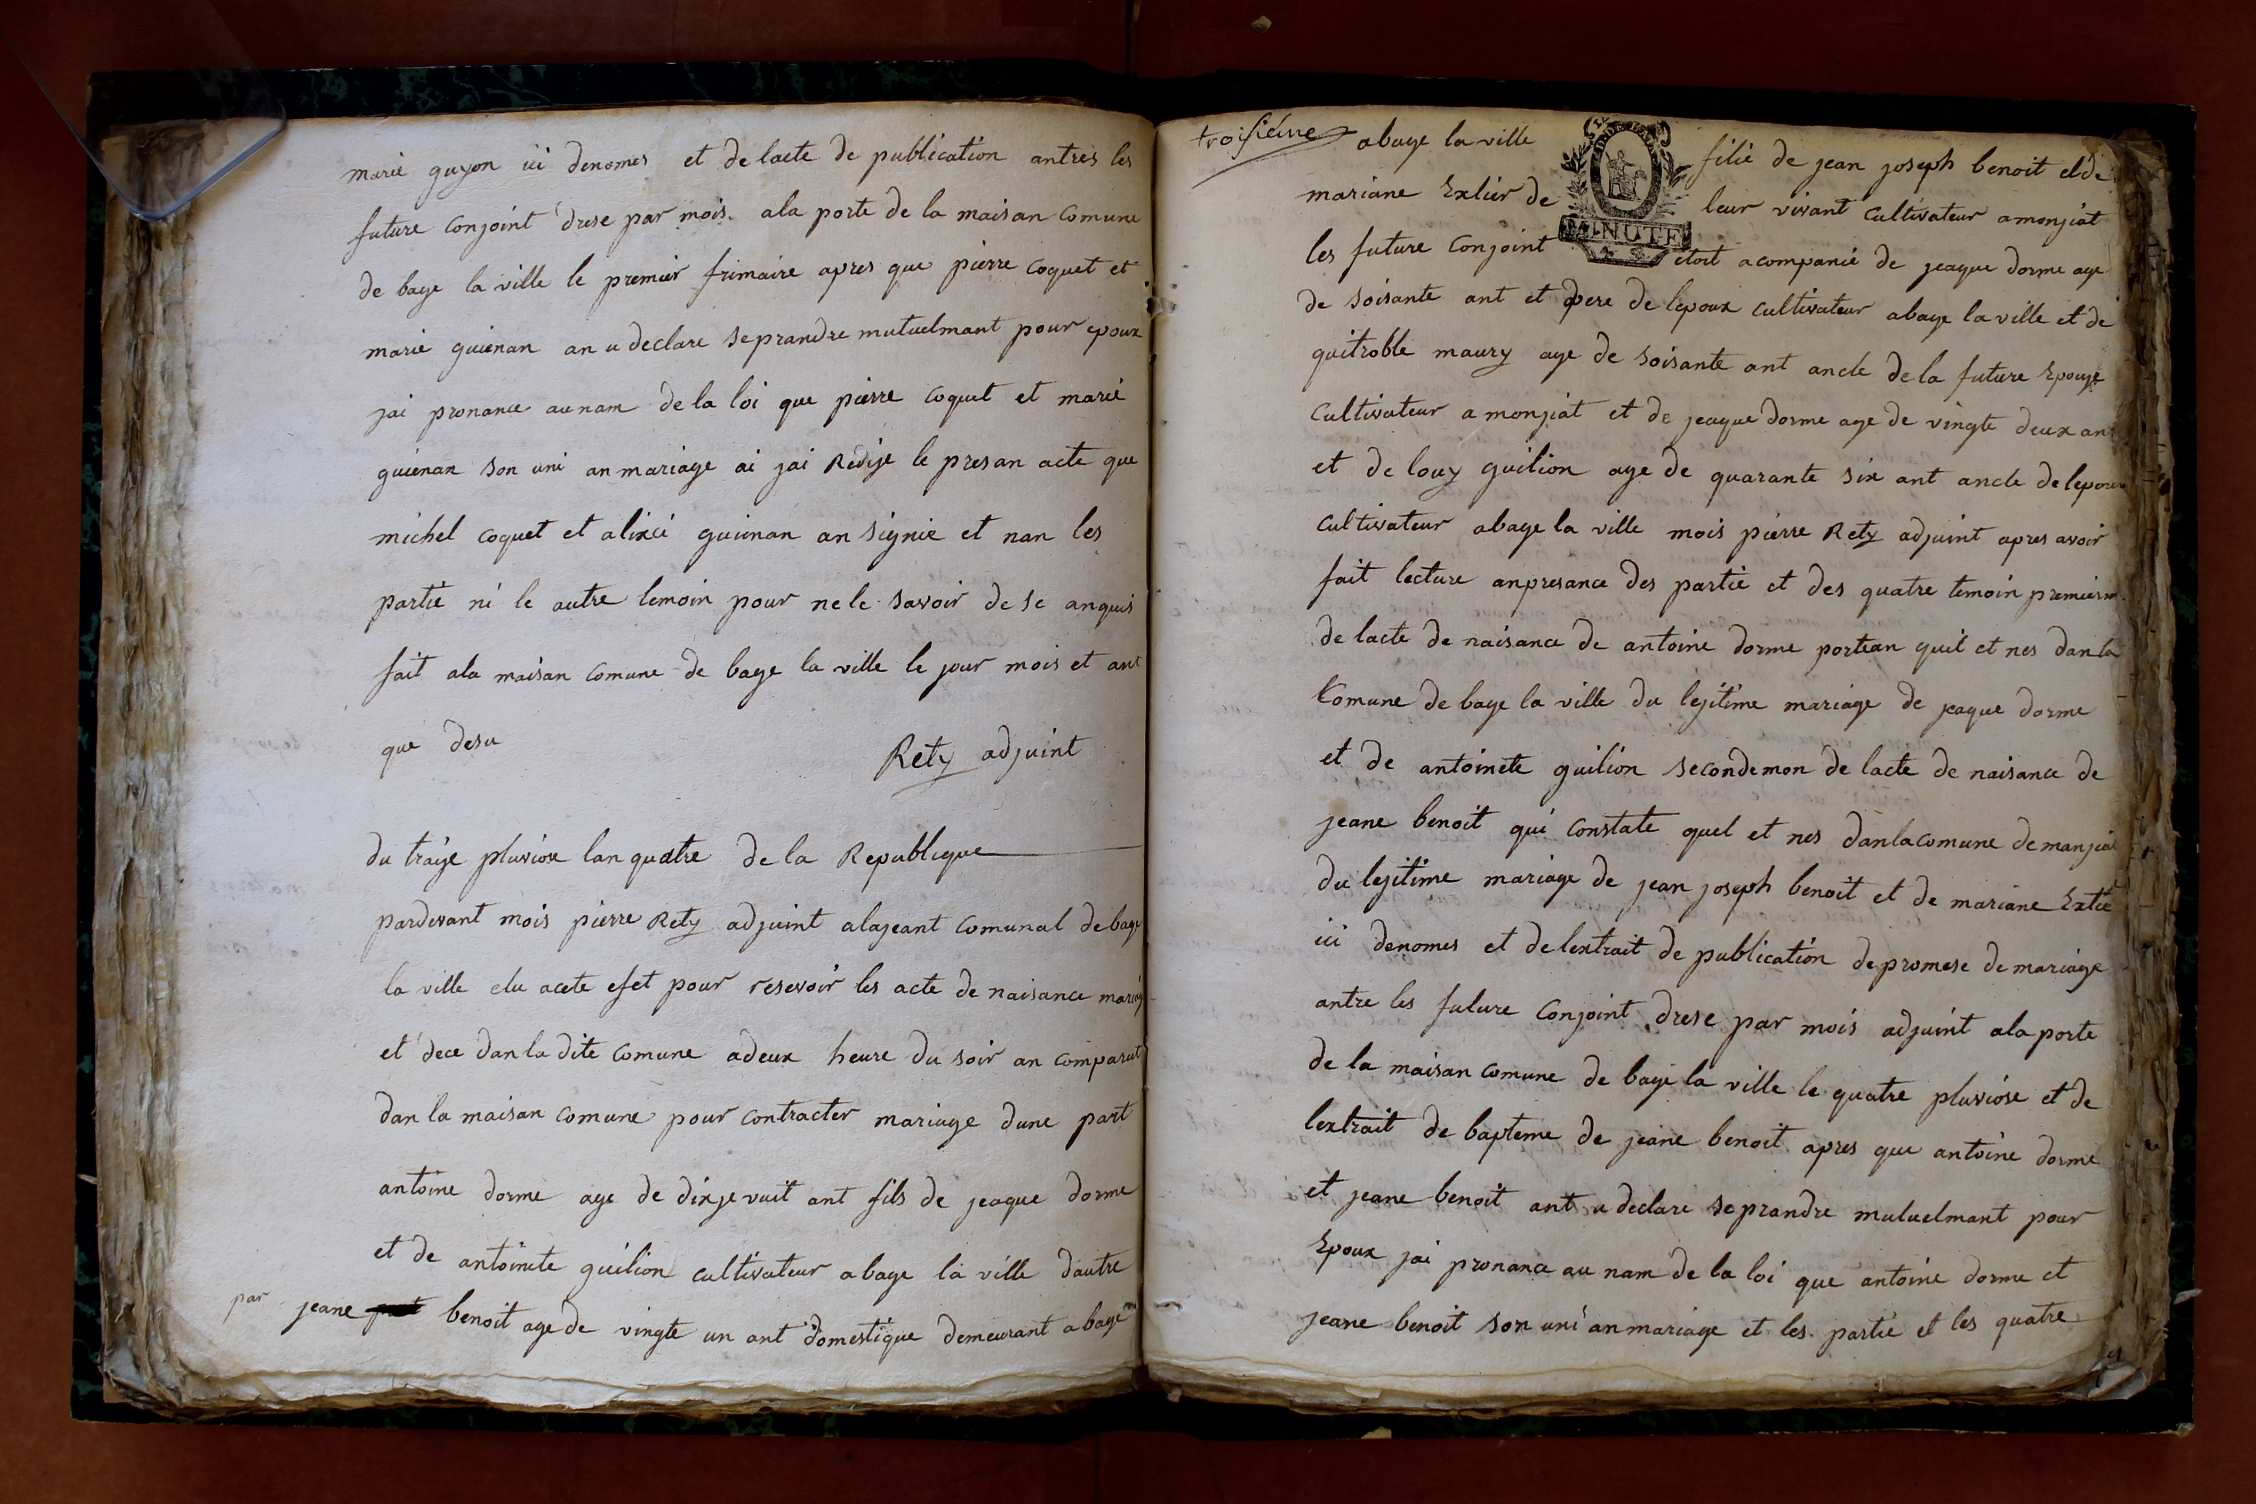 marie guyon ici denomes et de lacte de publication antres les
future conjoint drese par mois ala porte de la maisan comune
de bage la ville le premier frimaire apres que pierre coquet et
marie guienan an u declare se prandre mutuelmant pour epoux
jai pronance au nam de la loi que pierre coquet et marie
guienan son uni an mariage ai jai Redije le presan acte que
michel coquet et alixci guienan an signie et nan les
partie ni le autre temoin pour ne le savoir de se anquis
fait ala maisan comune de bage la ville le jour mois et ant
que desu
Rety adjuint
du traije pluviose lan quatre de la Republique
pardevant mois pierre Rety adjuint alajeant comunal de bage
la ville elu acete efet pour resevoir les acte de naisance mariage
et dece dan la dite comune adeux heure du soir an comparut
dan la maisan comune pour contracter mariage dune part
antoine dorme age de dixje vuit ant fils de jeaque dorme
et de antoinete guilion cultivateur abage la ville dautre
par jeane benoit age de vingte un ant domestique demeurant abage
troisiéme abage la ville filie de jean joseph benoit et de
mariane Extier de leur vivant cultivateur a monjiat
MINUTE
les future conjoint etoit acompanié de jeaque dorme age
de soisante ant et pere de lepoux cultivateur abage la ville et de
quitroble maury age de soisante ant ancle de la future Epouse
cultivateur a monjiat et de jeaque dorme age de vingte deux ant
et de louy guilion age de quarante six ant ancle de lepoux
cultivateur abage la ville mois pierre Rety adjuint apres avoir
fait lecture anpresance des partie et des quatre temoin premierm
de lacte de naisance de antoine dorme portean quil et nes dan la
Comune de bage la ville du lejitime mariage de jeaque dorme
et de antoinete guilion secondemon de lacte de naisance de
jeane benoit qui constate quel et nes dan la comune de manjiat
du lejitime mariage de jean joseph benoit et de mariane Extie
ici denomes et de lextrait de publication de promese de mariage
antre les future conjoint drese par mois adjuint ala porte
de la maisan comune de bage la ville le quatre pluviose et de
lextrait de bapteme de jeane benoit apres que antoine dorme
et jeane benoit ant u declare se prandre mutuelmant pour
Epoux jai pronance au nam de la loi que antoine dorme et
jeane benoit son uni an mariage et les partie et les quatre